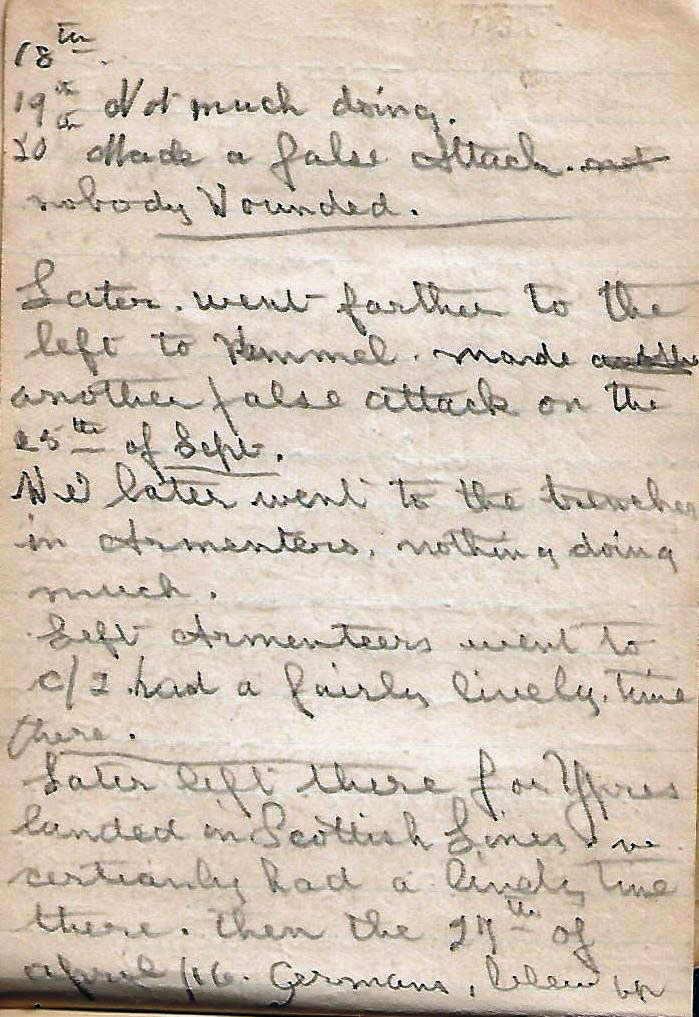 18th.
19th Not much doing.
20th Made a false attack. not
nobody Wounded.
Later. went farther to the
left to Kemmel. made
another false attack on the
25th of Sept.
We later went to the trenches
in Armenters. nothing doing
much.
Left Armenteers went to
c/2. had a fairly lively. Time
there.
Later left there for Ypres
landed in Scottish Lines. we
certianly had a lively Time
there. then the 27th of
april /16. Germans, blew up